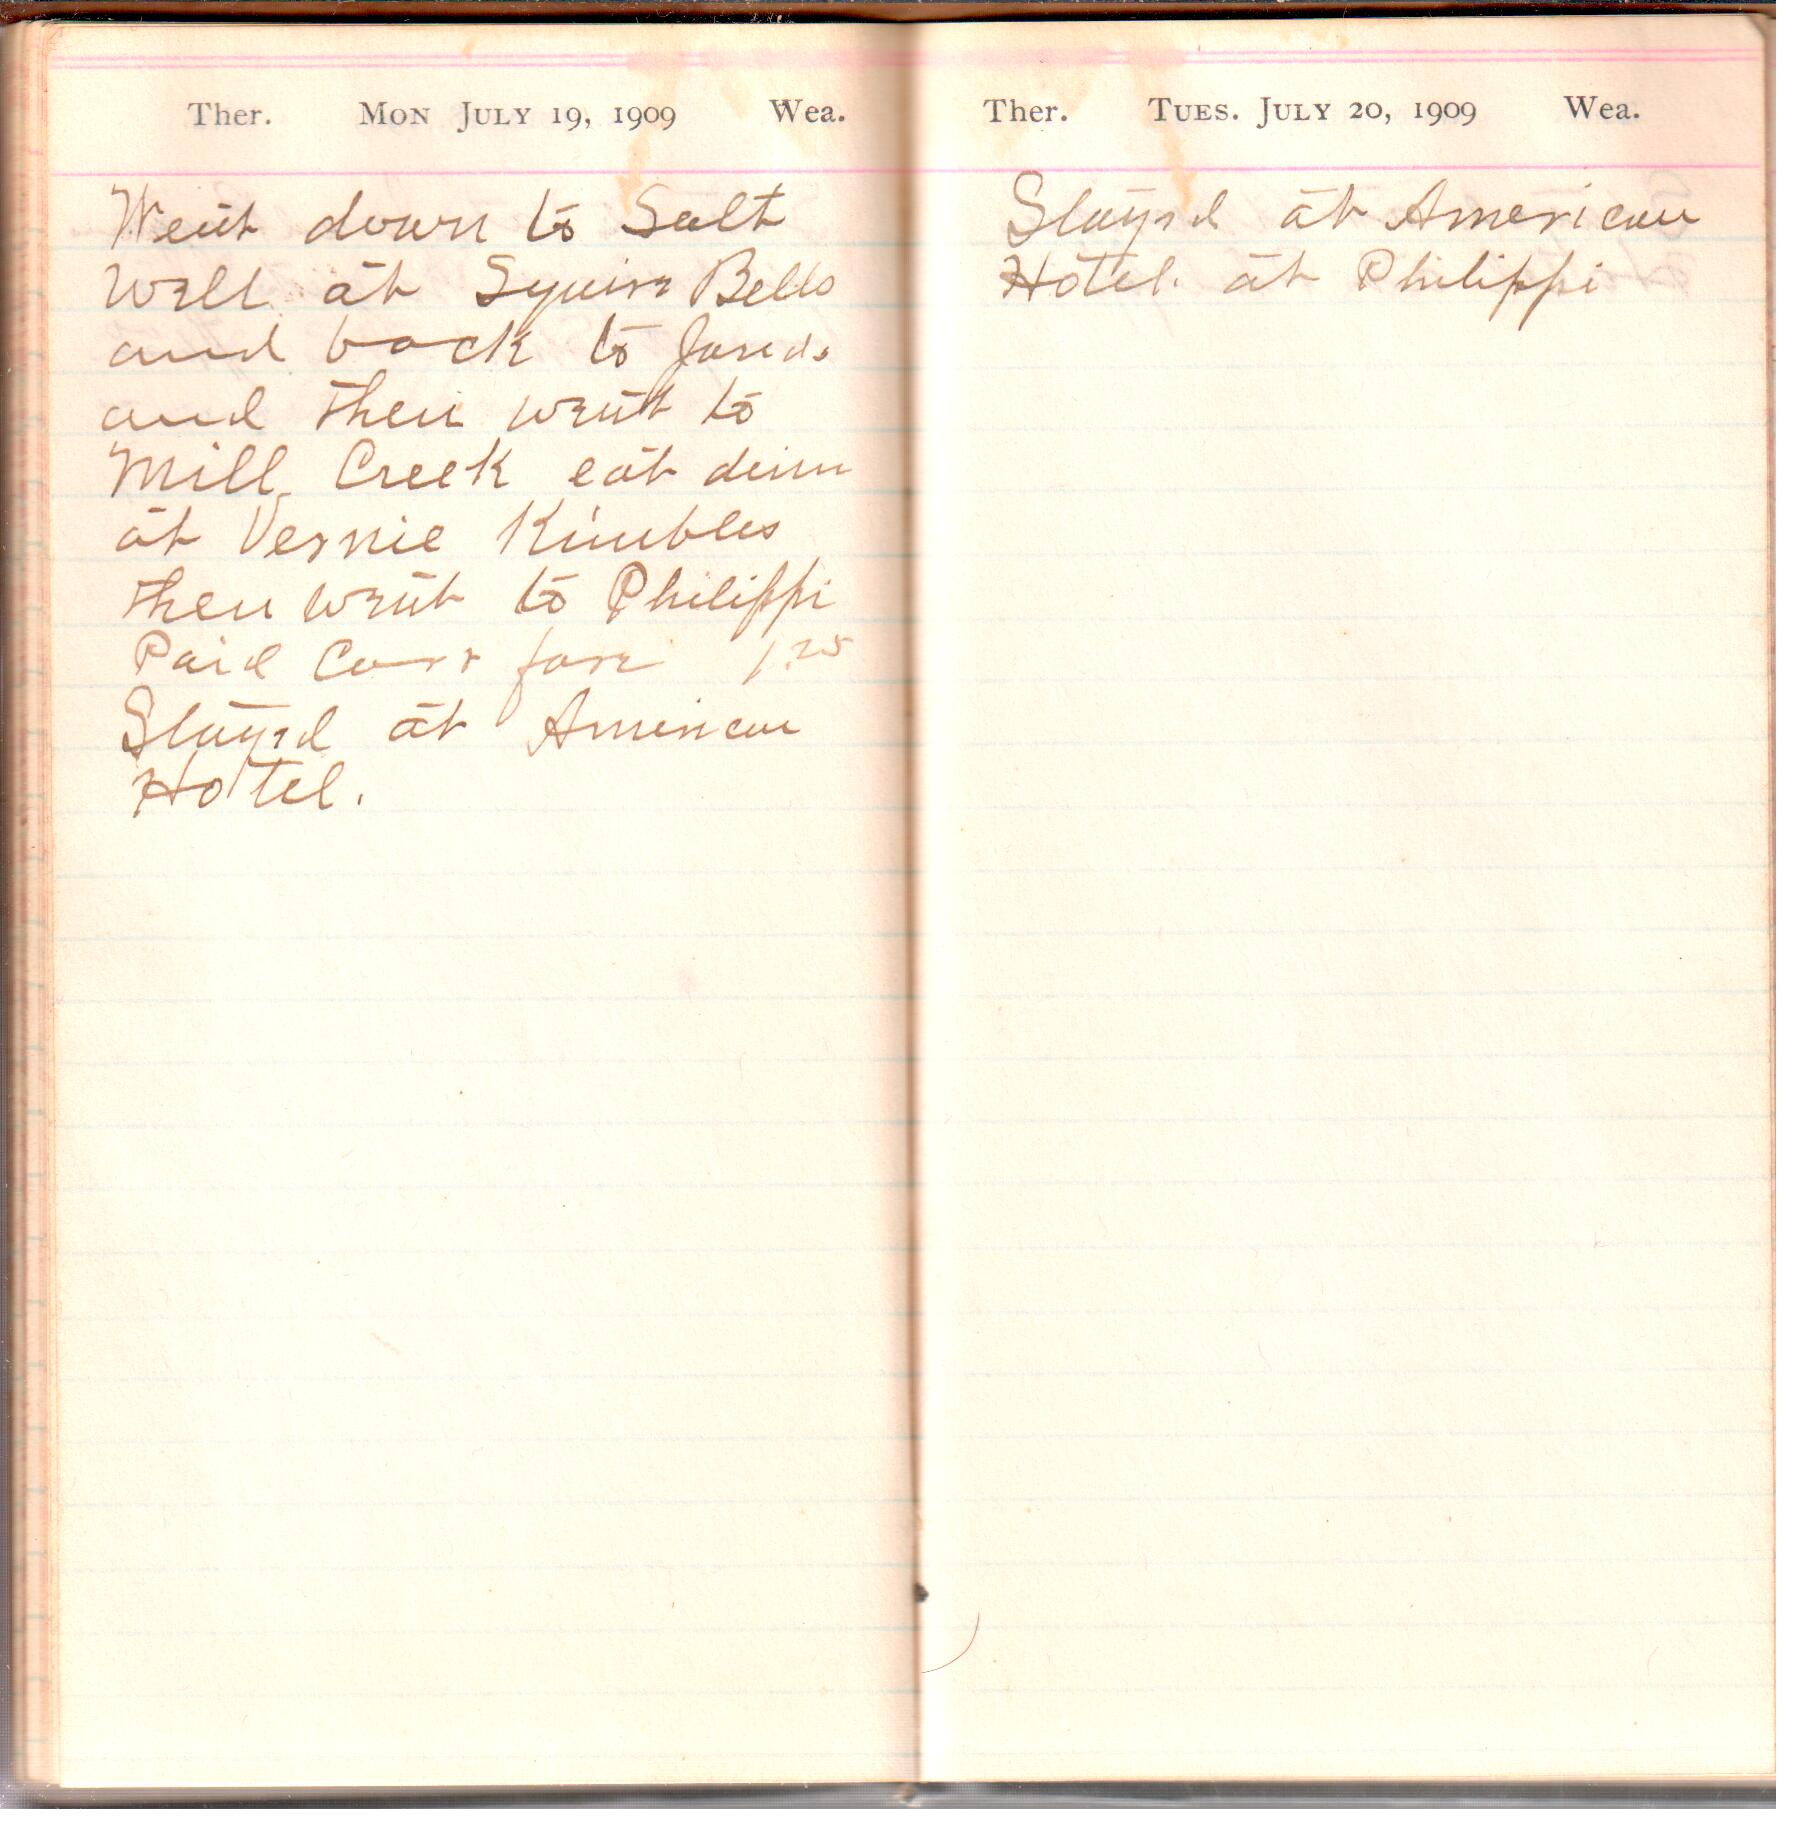 Ther. Mon July 19, 1909 Wea.
Went down to Salt
Well at Squire Bells
and back to Jareds
and then went to
Mill Creek eat dinn
at Vernie Kimbles
then went to Philippi
Paid Carr fare 1.25
Stayed at American
Hotel.
Ther. Tues. July 20, 1909 Wea.
Stayed at American
Hotel. at Philippi